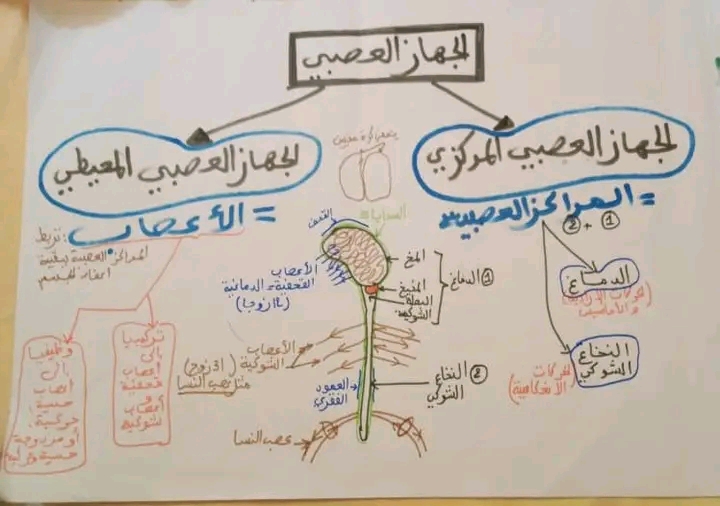 الجهاز العصبي
الجهاز العصبي المركزي
= المراكز العصبية
1 + 2
الدماغ
(الحركات الإرادية
والأحاسيس)
النخاع
الشوكي
(الحركات
الانعكاسية)
الجهاز العصبي المحيطي
= الأعصاب
: تربط
المراكز العصبية ببقية
أعضاء الجسم
تركيبيا
إلى
أعصاب
قحفية
و
أعصاب
شوكية
وظيفيا
إلى
أعصاب
حسية
حركية
أو مزدوجة
حسية وحركية
القحف
السحايا
المخ
المخيخ
البصلة
الشوكية
1 الدماغ
الأعصاب
القحفية = الدماغية
(12 زوجا)
الأعصاب
الشوكية (31 زوج)
مثل عصب النسا
2 النخاع
الشوكي
العمود
الفقري
عصب النسا